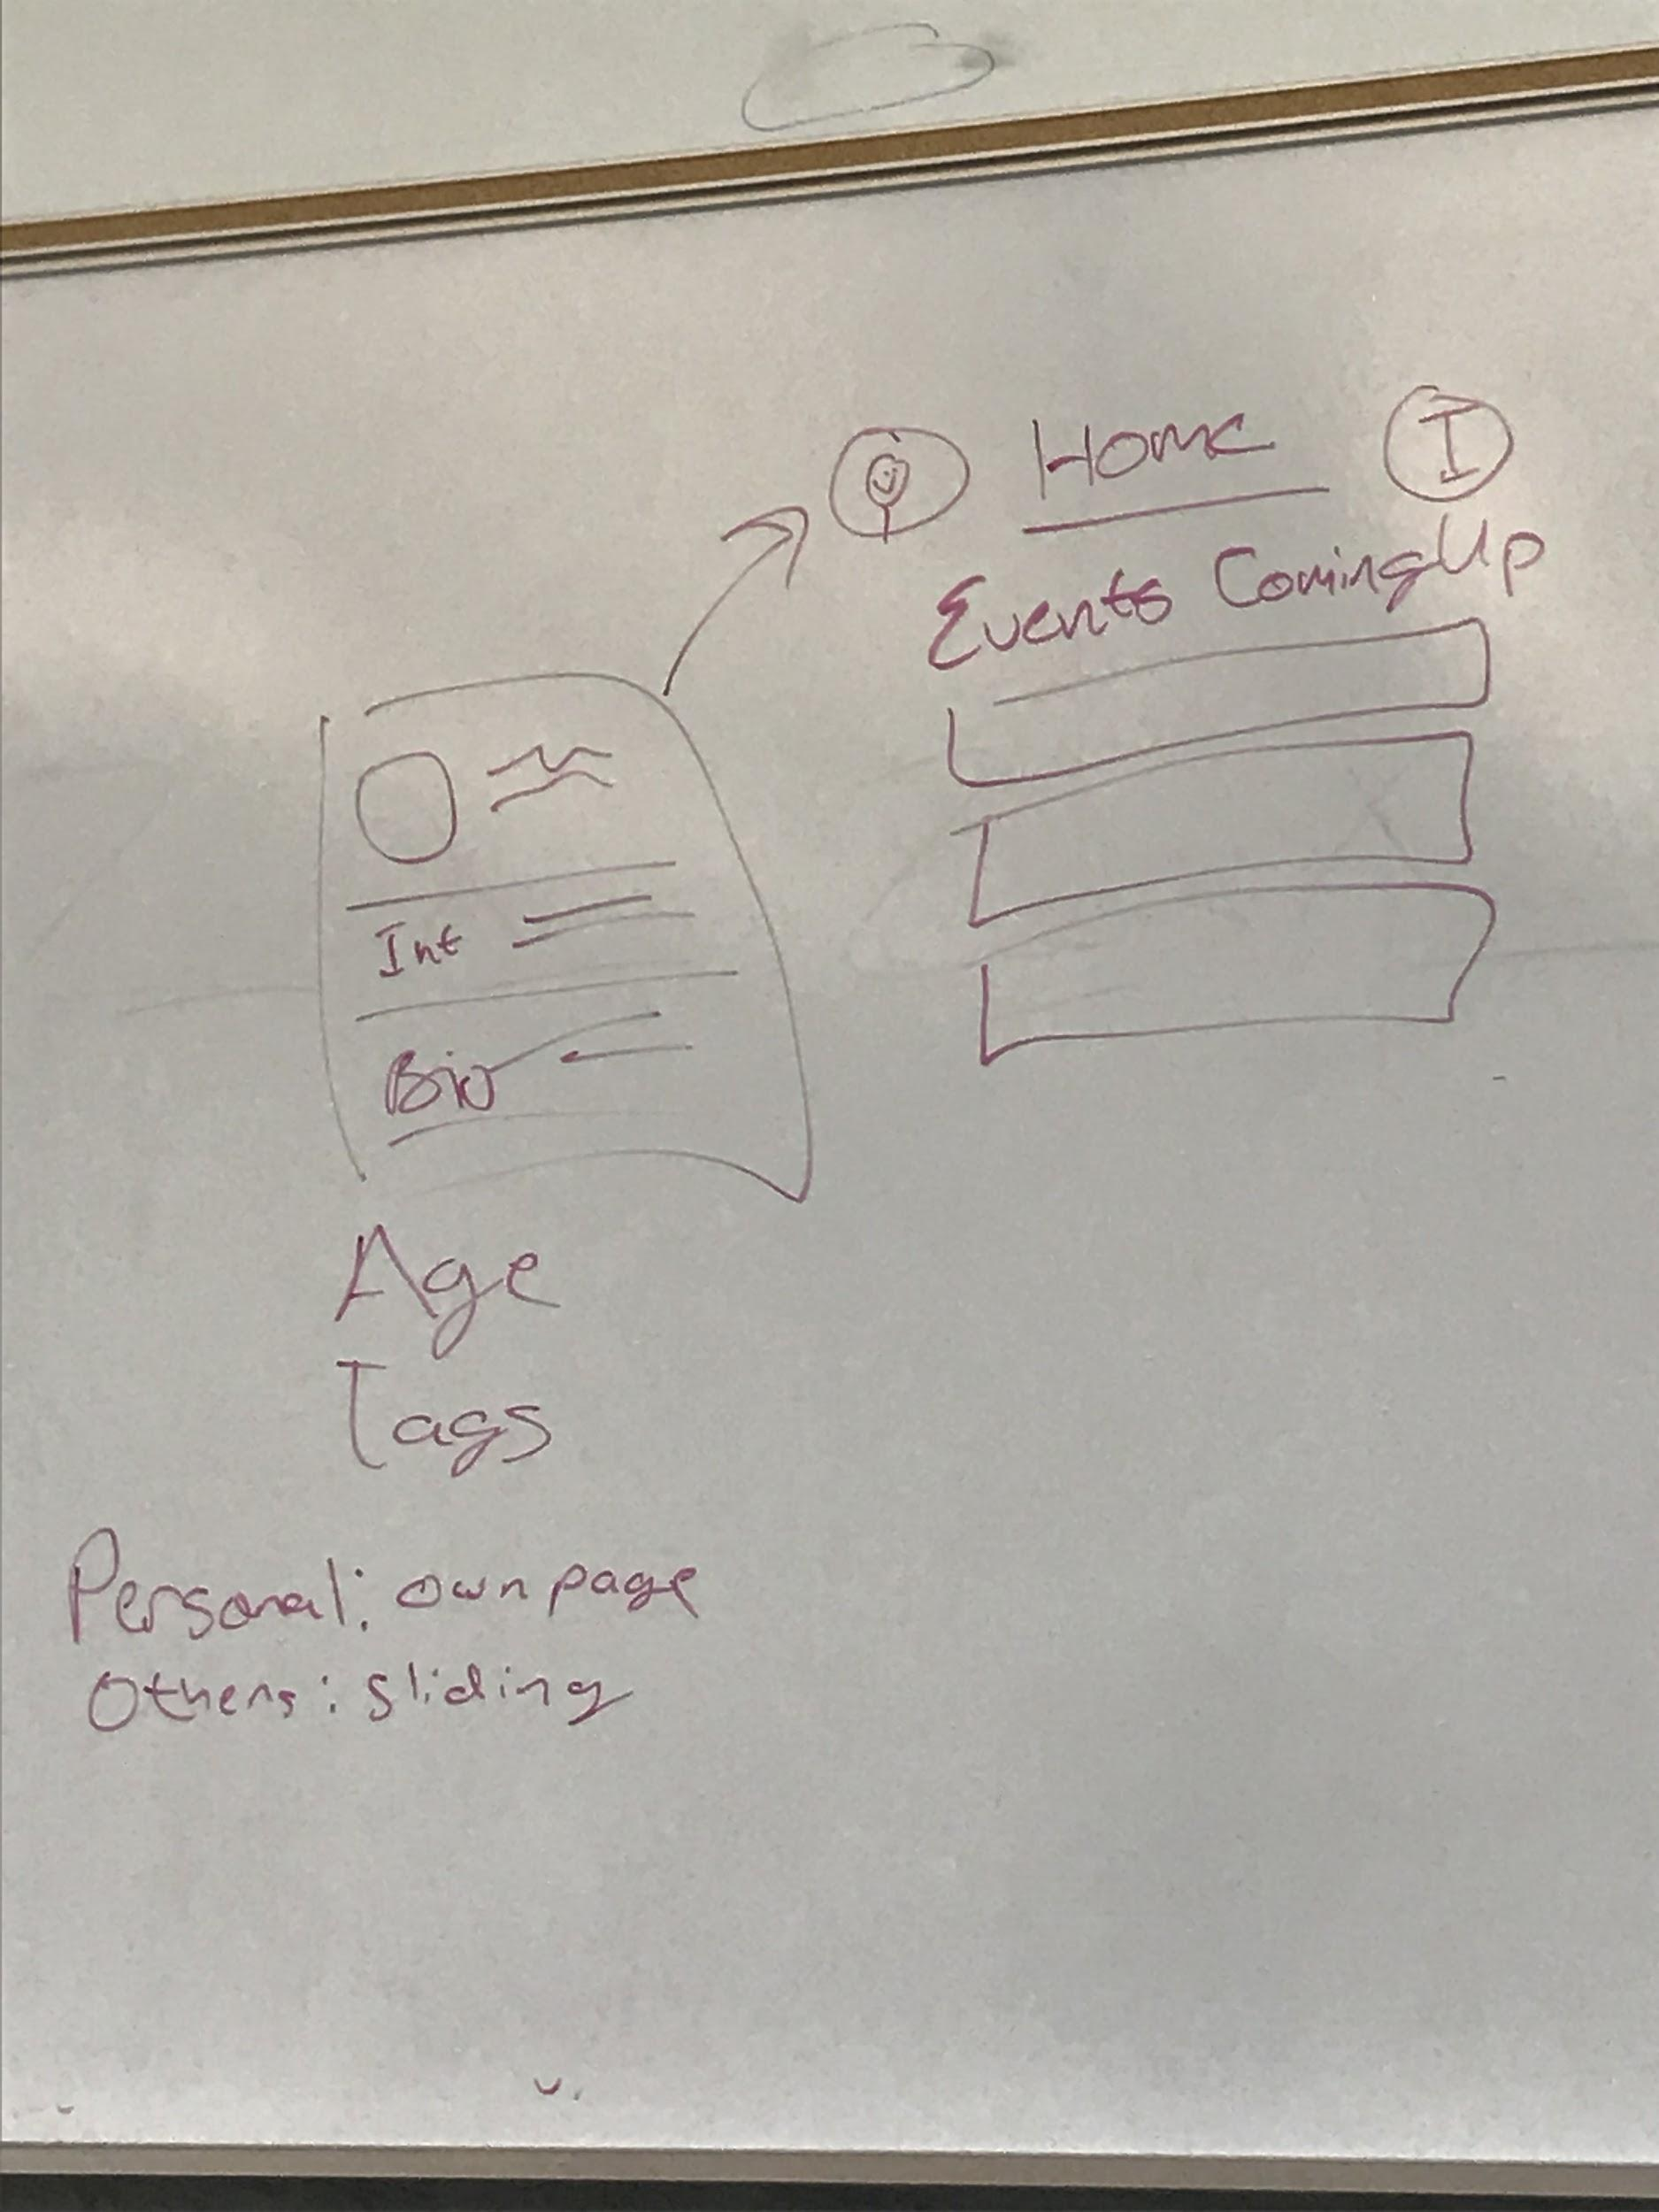 Home I
Events Coming Up
Int
Bio
Age
Tags
Personal: own page
Others: sliding